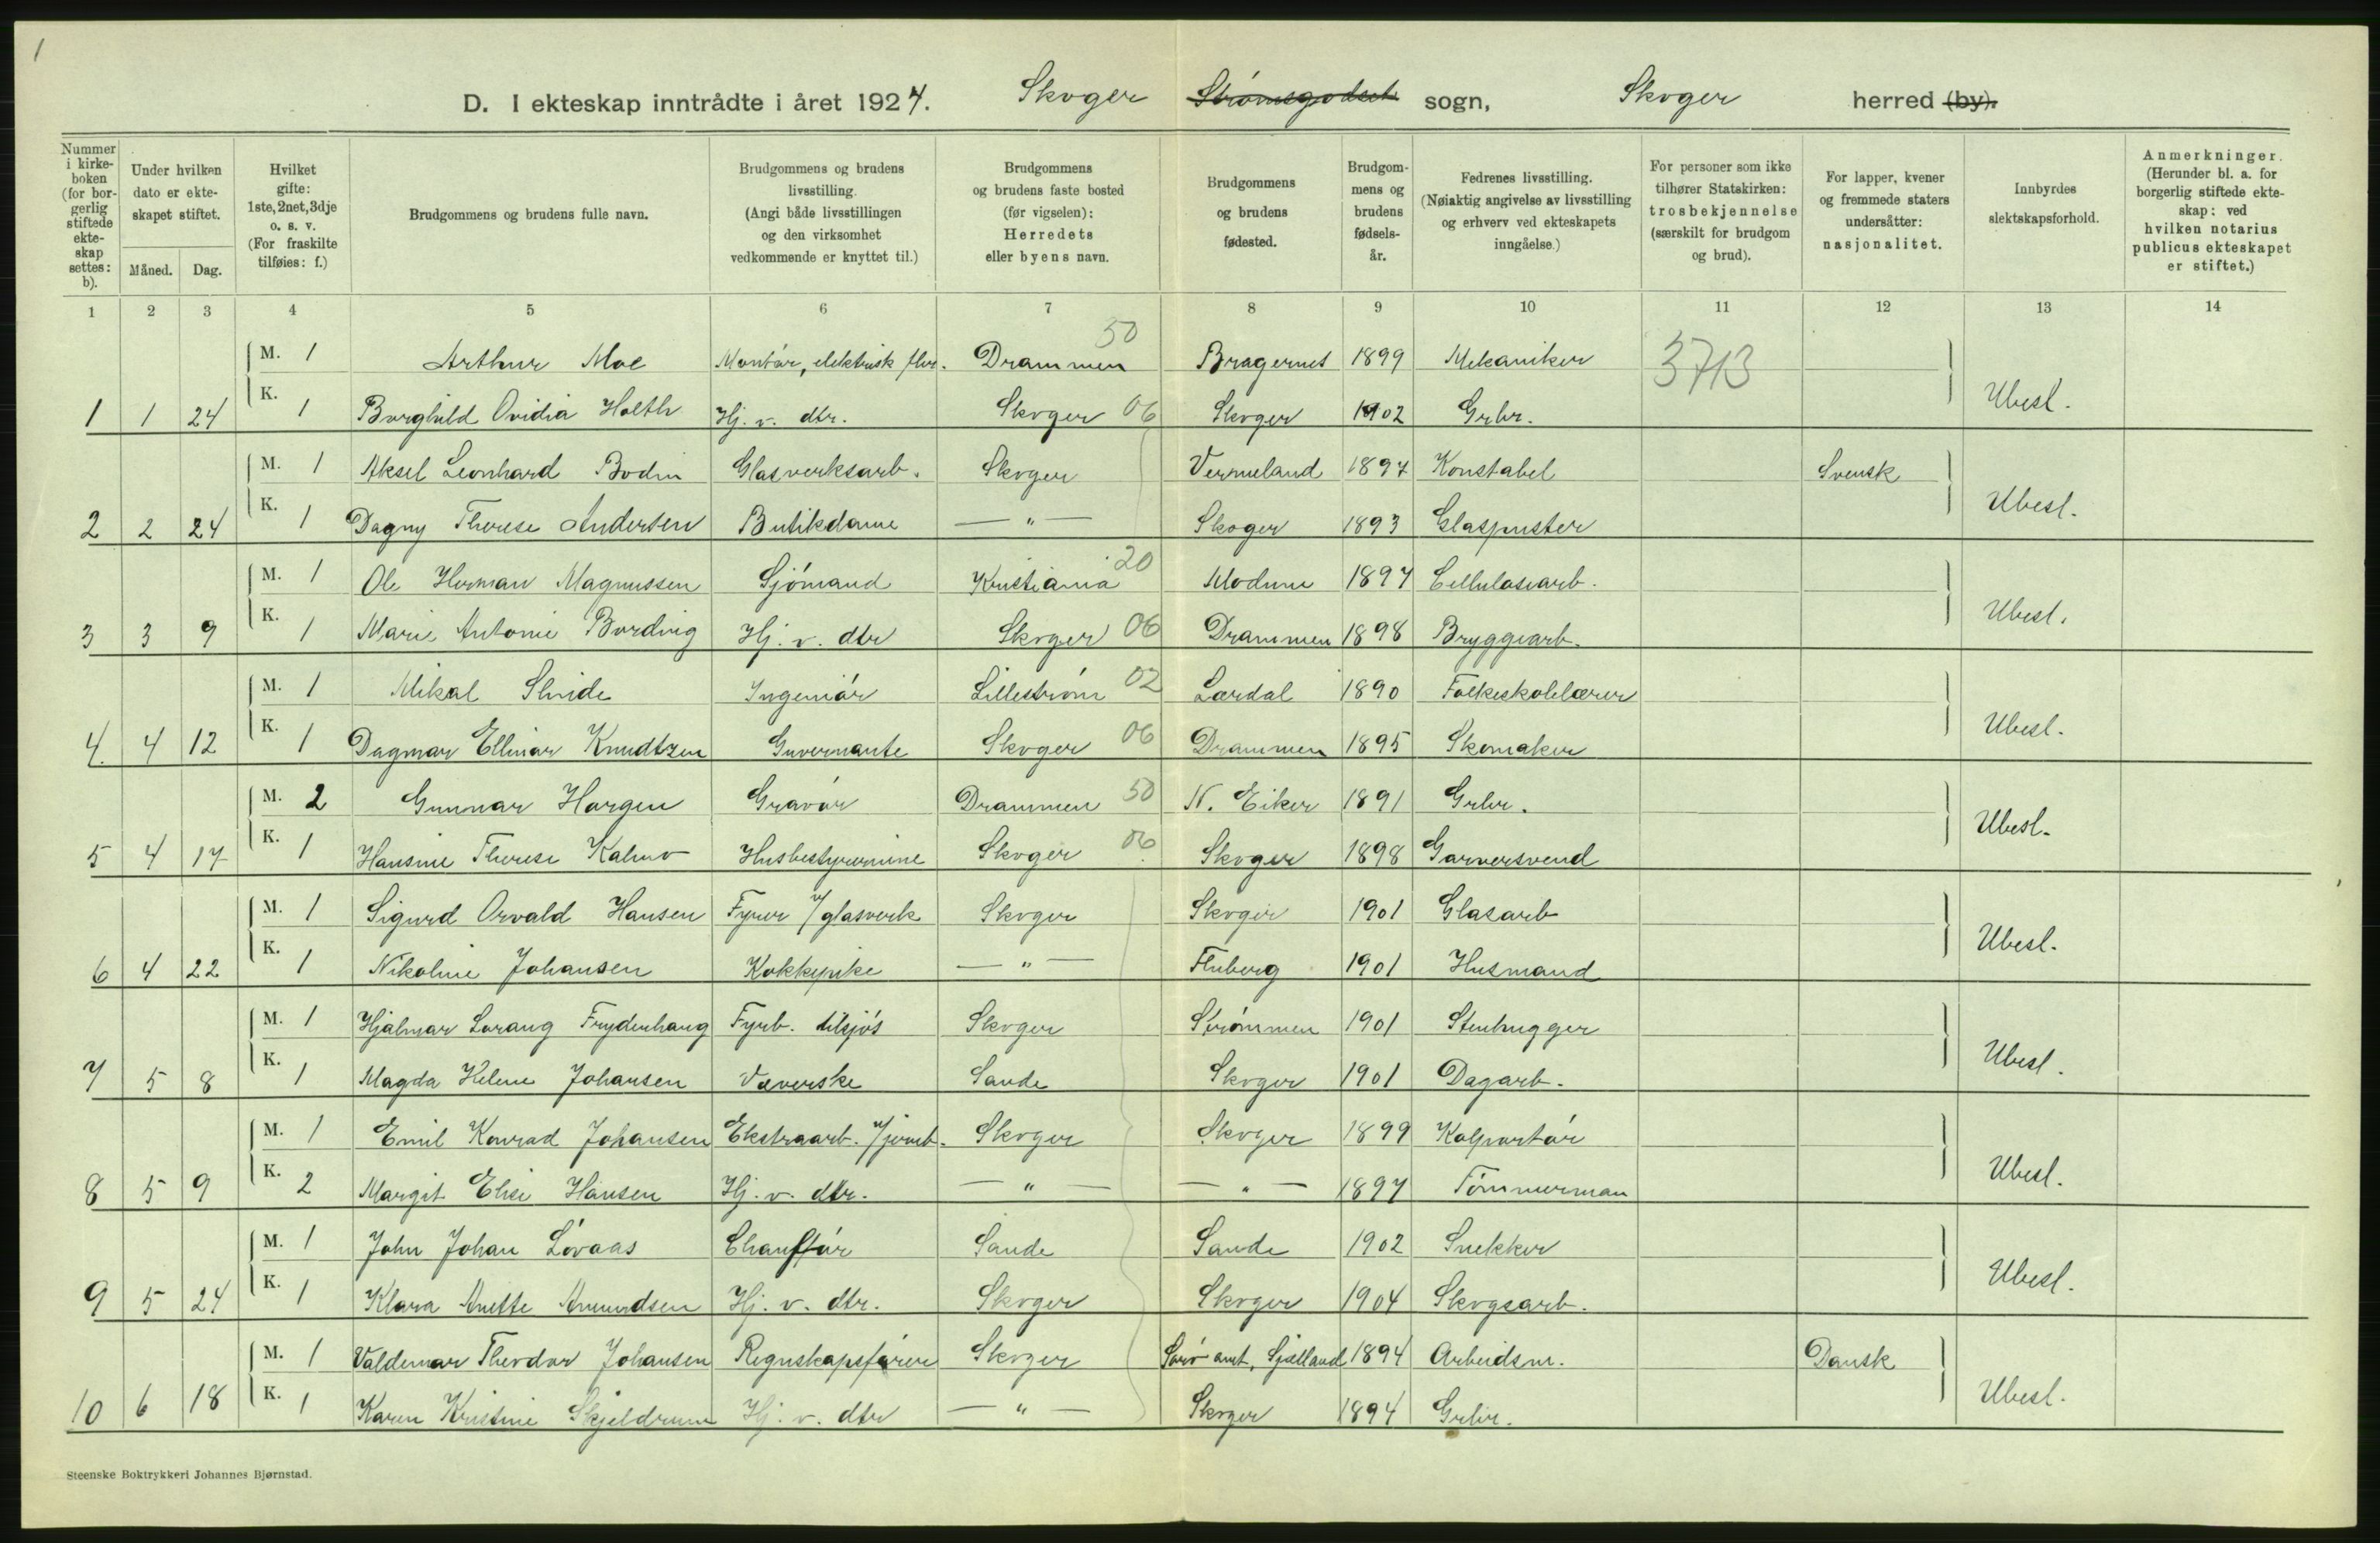 1
D. I ekteskap inntrådte i året 1924. Skoger Strømsgodset sogn, Skoger herred (by).
Nummer i kirkeboken (for borgerlig stiftede ekteskap settes: b).
Under hvilken dato er ekteskapet stiftet.
Måned. Dag.
Hvilket gifte: 1ste, 2net, 3dje o. s. v. (For fraskilte tilføies: f.)
Brudgommens og brudens fulle navn.
Brudgommens og brudens livsstilling. (Angi både livsstillingen og den virksomhet vedkommende er knyttet til.)
Brudgommens og brudens faste bosted (før vigselen): Herredets eller byens navn.
Brudgommens og brudens fødested.
Brudgommens og brudens fødselsår.
Fedrenes livsstilling. (Nøiaktig angivelse av livsstilling og erhverv ved ekteskapets inngåelse.)
For personer som ikke tilhører Statskirken: trosbekjennelse (særskilt for brudgom og brud).
For lapper, kvener og fremmede staters undersåtter: nasjonalitet.
Innbyrdes slektskapsforhold.
Anmerkninger. (Herunder bl. a. for borgerlig stiftede ekteskap: ved hvilken notarius publicus ekteskapet er stiftet.)
1 2 3 4 5 6 7 8 9 10 11 12 13 14
M. 1 Arthur Moe Montør, elektrisk Drammen 50 Bragernes 1899 Mekaniker 3713
1 1 24 K. 1 Borghild Ovidia Holth Hj. v. dtr. Skoger 06 Skoger 1902 Grbr. Ubesl.
M. 1 Aksel Leonhard Bodin Glasverksarb. Skoger Vermeland 1897 Konstabel Svensk
2 2 24 K. 1 Dagny Therese Andersen Butikdame — " — Skoger 1893 Glaspuster Ubesl.
M. 1 Ole Herman Magnussen Sjómand Kristiania 20 Modum 1897 Cellulosearb.
3 3 9 K. 1 Marie Antonie Bording Hj. v. dtr Skoger 06 Drammen 1898 Bryggearb. Ubesl.
M. 1 Mikal Ingeniór Lillestróm 02 Lærdal 1890 Folkeskolelærer
4. 4 12 K. 1 Dagmar Ellinor Knudtzen Guvernante Skoger 06 Drammen 1895 Skomaker Ubesl.
M. 2 Gunnar Horgen Gravór Drammen 50 N. Eiker 1891 Grbr.
5 4 17 K. 1 Hansine Therese Husbestyrerinne Skoger 06 Skoger 1898 Garversvend Ubesl.
M. 1 Sigurd Orvald Hansen Fyrer v/glasverk Skoger Skoger 1901 Glasarb
6 4 22 K. 1 Nikoline Johansen Kokkepike — " — Fluberg 1901 Husmand Ubesl.
M. 1 Hjalmar Lorang Frydenhaug Fyrb. tilsjós Skoger Strómmen 1901 Stenhugger
7 5 8 K. 1 Magda Helene Johansen Væverske Sande Skoger 1901 Dagarb. Ubesl.
M. 1 Emil Konrad Johansen Ekstraarb. v/jernb. Skoger Skoger 1899 Kolportór
8 5 9 K. 2 Margit Elise Hansen Hj. v. dtr. — " — — " — 1897 Tómmerman Ubesl.
M. 1 John Johan Lóvaas Chauffór Sande Sande 1902 Snekker
9 5 24 K. 1 Klara Anette Amundsen Hj. v. dtr. Skoger Skoger 1904 Skogsarb. Ubesl.
M. 1 Valdemar Theodor Johansen Regnskapsfører Skoger Soró amt, Sjælland 1894 Arbeidsm. Dansk
10 6 18 K. 1 Karen Kristine Skjeldrum Hj. v. dtr — " — Skoger 1894 Grbr. Ubesl.
Steenske Boktrykkeri Johannes Bjørnstad.